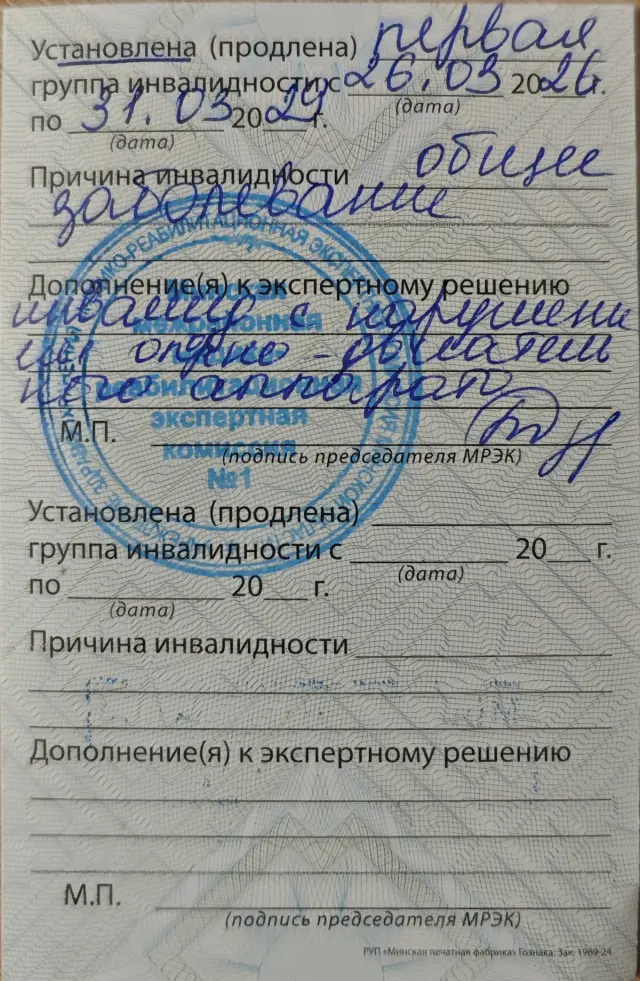 Установлена (продлена) первая
группа инвалидности с 26.03 2026г.
(дата)
по 31.03 2029 г.
(дата)
Причина инвалидности общее
заболевание
Дополнение(я) к экспертному решению
инвалид с нарушени
ем опорно-двигатель
ного аппарата
М.П.
(подпись председателя МРЭК)
межрайонная
экспертная
комиссия
№1
Установлена (продлена)
группа инвалидности с 20 г.
(дата)
по 20 г.
(дата)
Причина инвалидности
Дополнение(я) к экспертному решению
М.П.
(подпись председателя МРЭК)
РУП «Минская печатная фабрика» Гознака. Зак. 1989-24